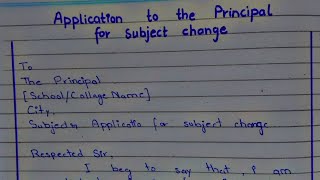 Application to the Principal
for subject change
To
The Principal
[School/College Name]
City.
Subject:, Applicatio for subject change
Respected Sir,
I beg to say that, I am